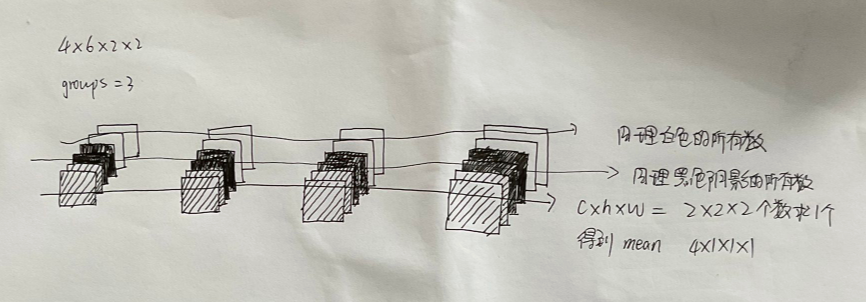 4×6×2×2
groups=3
同理白色的所有数
同理黑色阴影的所有数
C×h×w = 2×2×2个数求1个
得到 mean 4×1×1×1